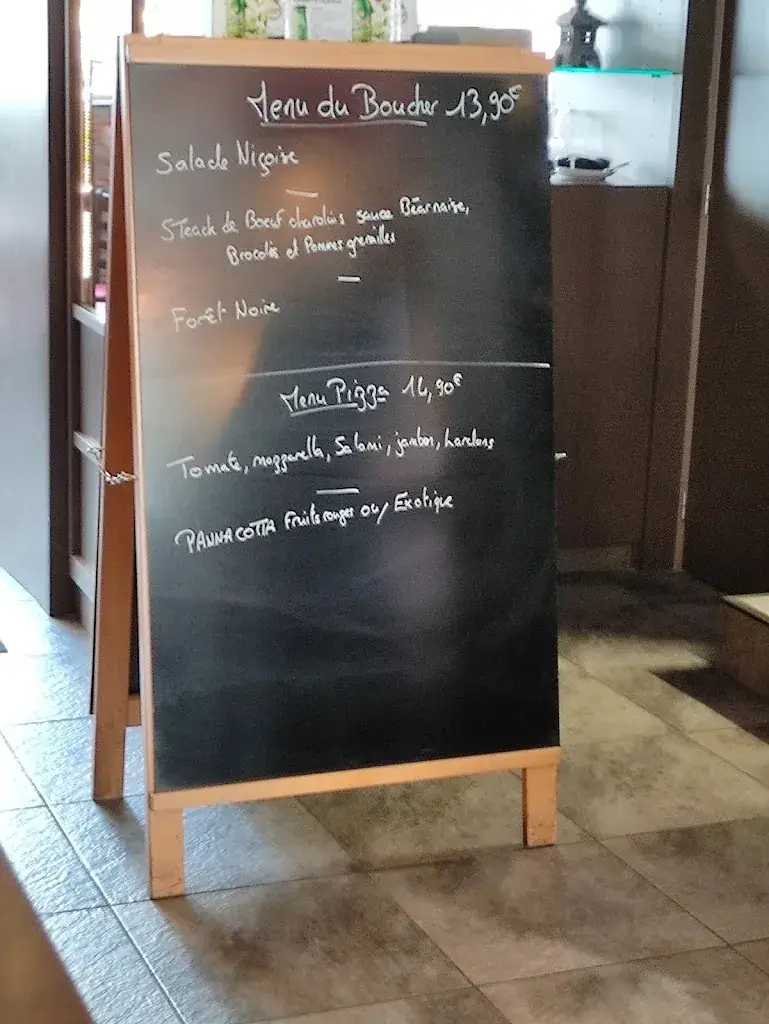 Menu du Boucher 13,90€
Salade Niçoise
Steack de Boeuf charolais sauce Béarnaise,
Brocolis et Pommes grenailles
Forêt Noire
Menu Pizza 14,90€
Tomate, mozzarella, Salami, jambon, Lardons
PANNA COTTA Fruits rouges ou/ Exotique